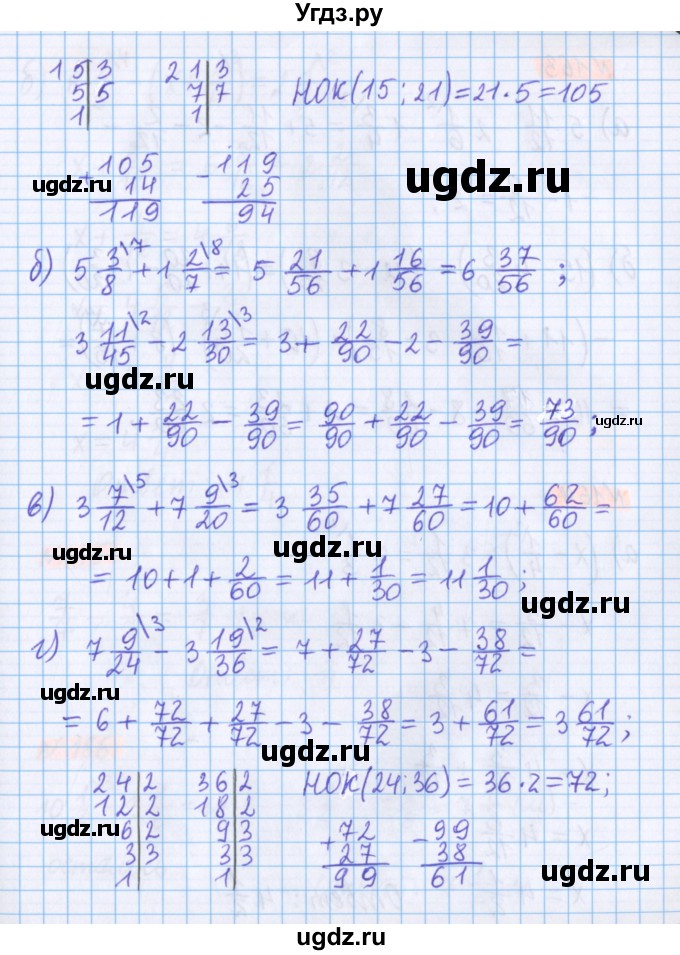 Угдз.ру
15|3 21|3 НОК(15;21)=21·5=105
5|5 7|7
1| 1|
+105 -119
14 25
119 94
ugdz.ru
ugdz.ru
б) 5 3/8\7 + 1 2/7\8 = 5 21/56 + 1 16/56 = 6 37/56 ;
3 11/45\2 - 2 13/30\3 = 3 + 22/90 - 2 - 39/90 =
ugdz.ru
= 1 + 22/90 - 39/90 = 90/90 + 22/90 - 39/90 = 73/90 ;
ugdz.ru
в) 3 7/12\5 + 7 9/20\3 = 3 35/60 + 7 27/60 = 10 + 62/60 =
ugdz.ru
ugdz.ru
= 10 + 1 + 2/60 = 11 + 1/30 = 11 1/30 ;
ugdz.ru
г) 7 9/24\3 - 3 19/36\2 = 7 + 27/72 - 3 - 38/72 =
ugdz.ru
= 6 + 72/72 + 27/72 - 3 - 38/72 = 3 + 61/72 = 3 61/72 ;
ugdz.ru
24|2 36|2 НОК(24;36) = 36·2 = 72;
12|2 18|2
6|2 9|3
3|3 3|3
1| 1|
+72 -99
27 38
99 61
ugdz.ru
ugdz.ru
ugdz.ru